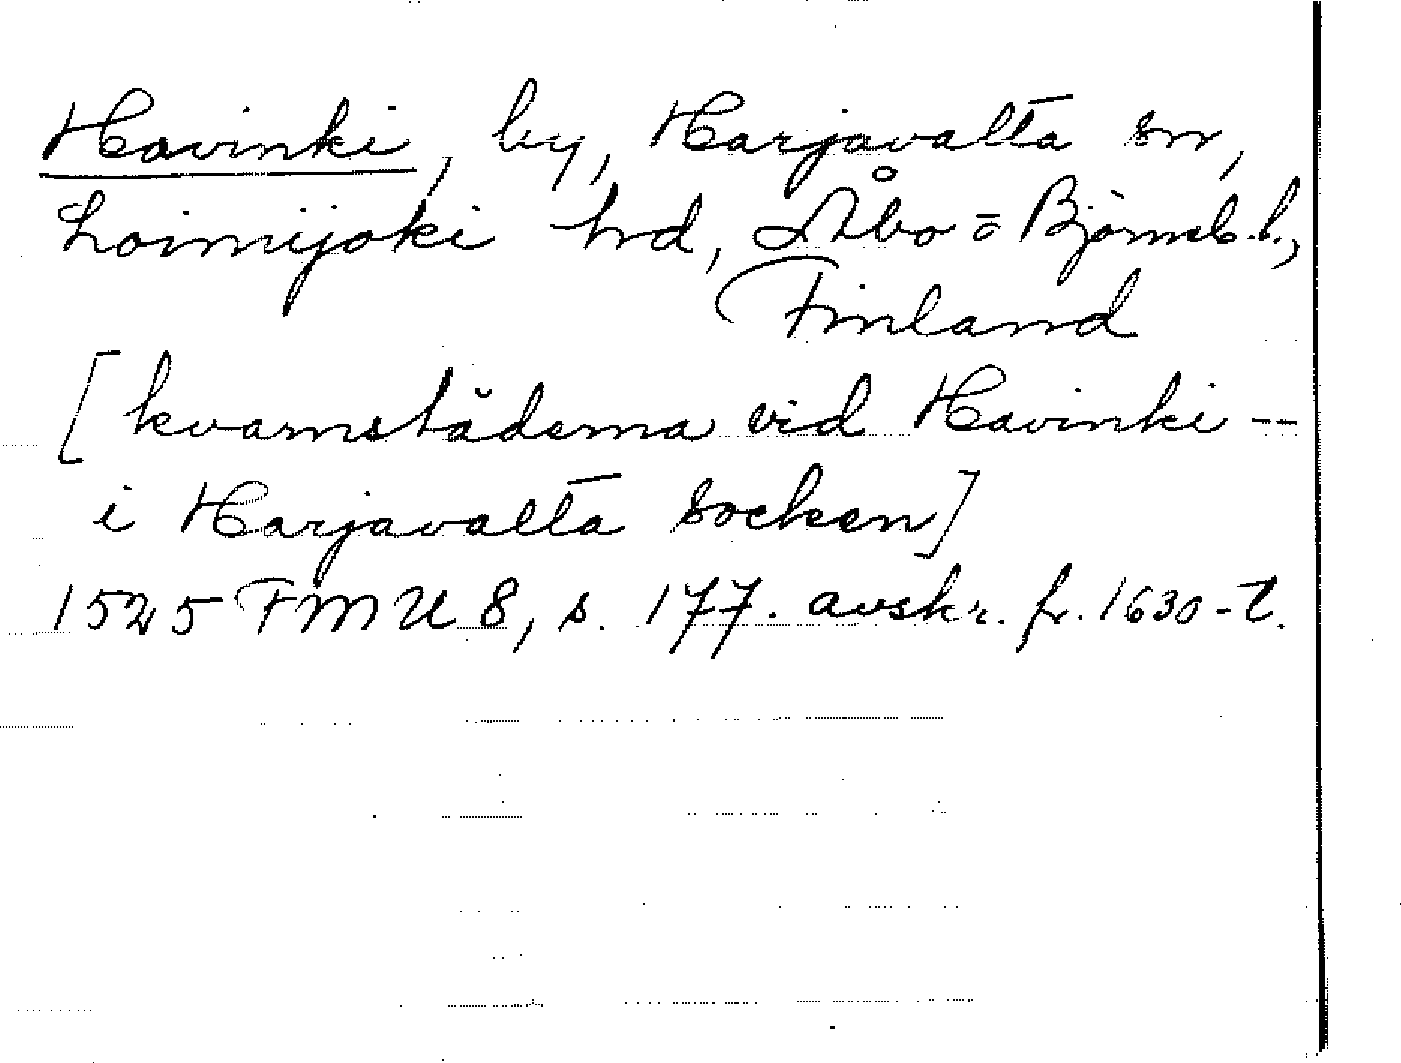 Havinki, by, Harjavalta sn,
Loimijoki hrd, Åbo=Björneb.l.,
Finland
[kvarnstäderna vid Havinki --
i Harjavalta socken]
1525 FMU 8, s. 177. avskr. fr. 1630-t.